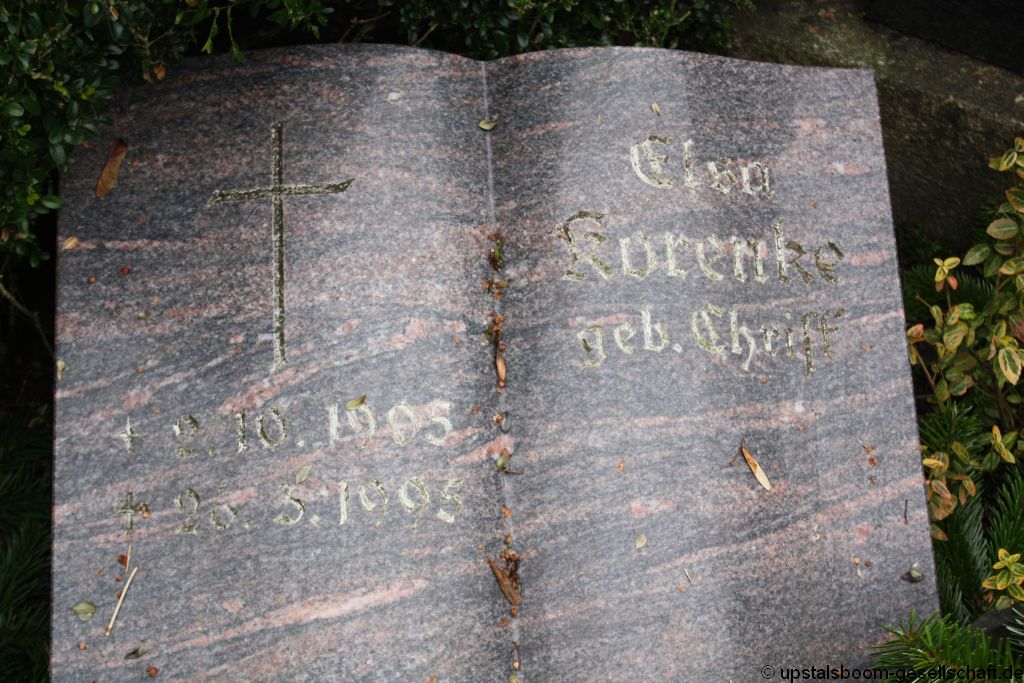 2. 10. 1905
✝ 20. 3. 1995
Elsa
Korenke
geb. Christ
© upstalsboom-gesellschaft.de